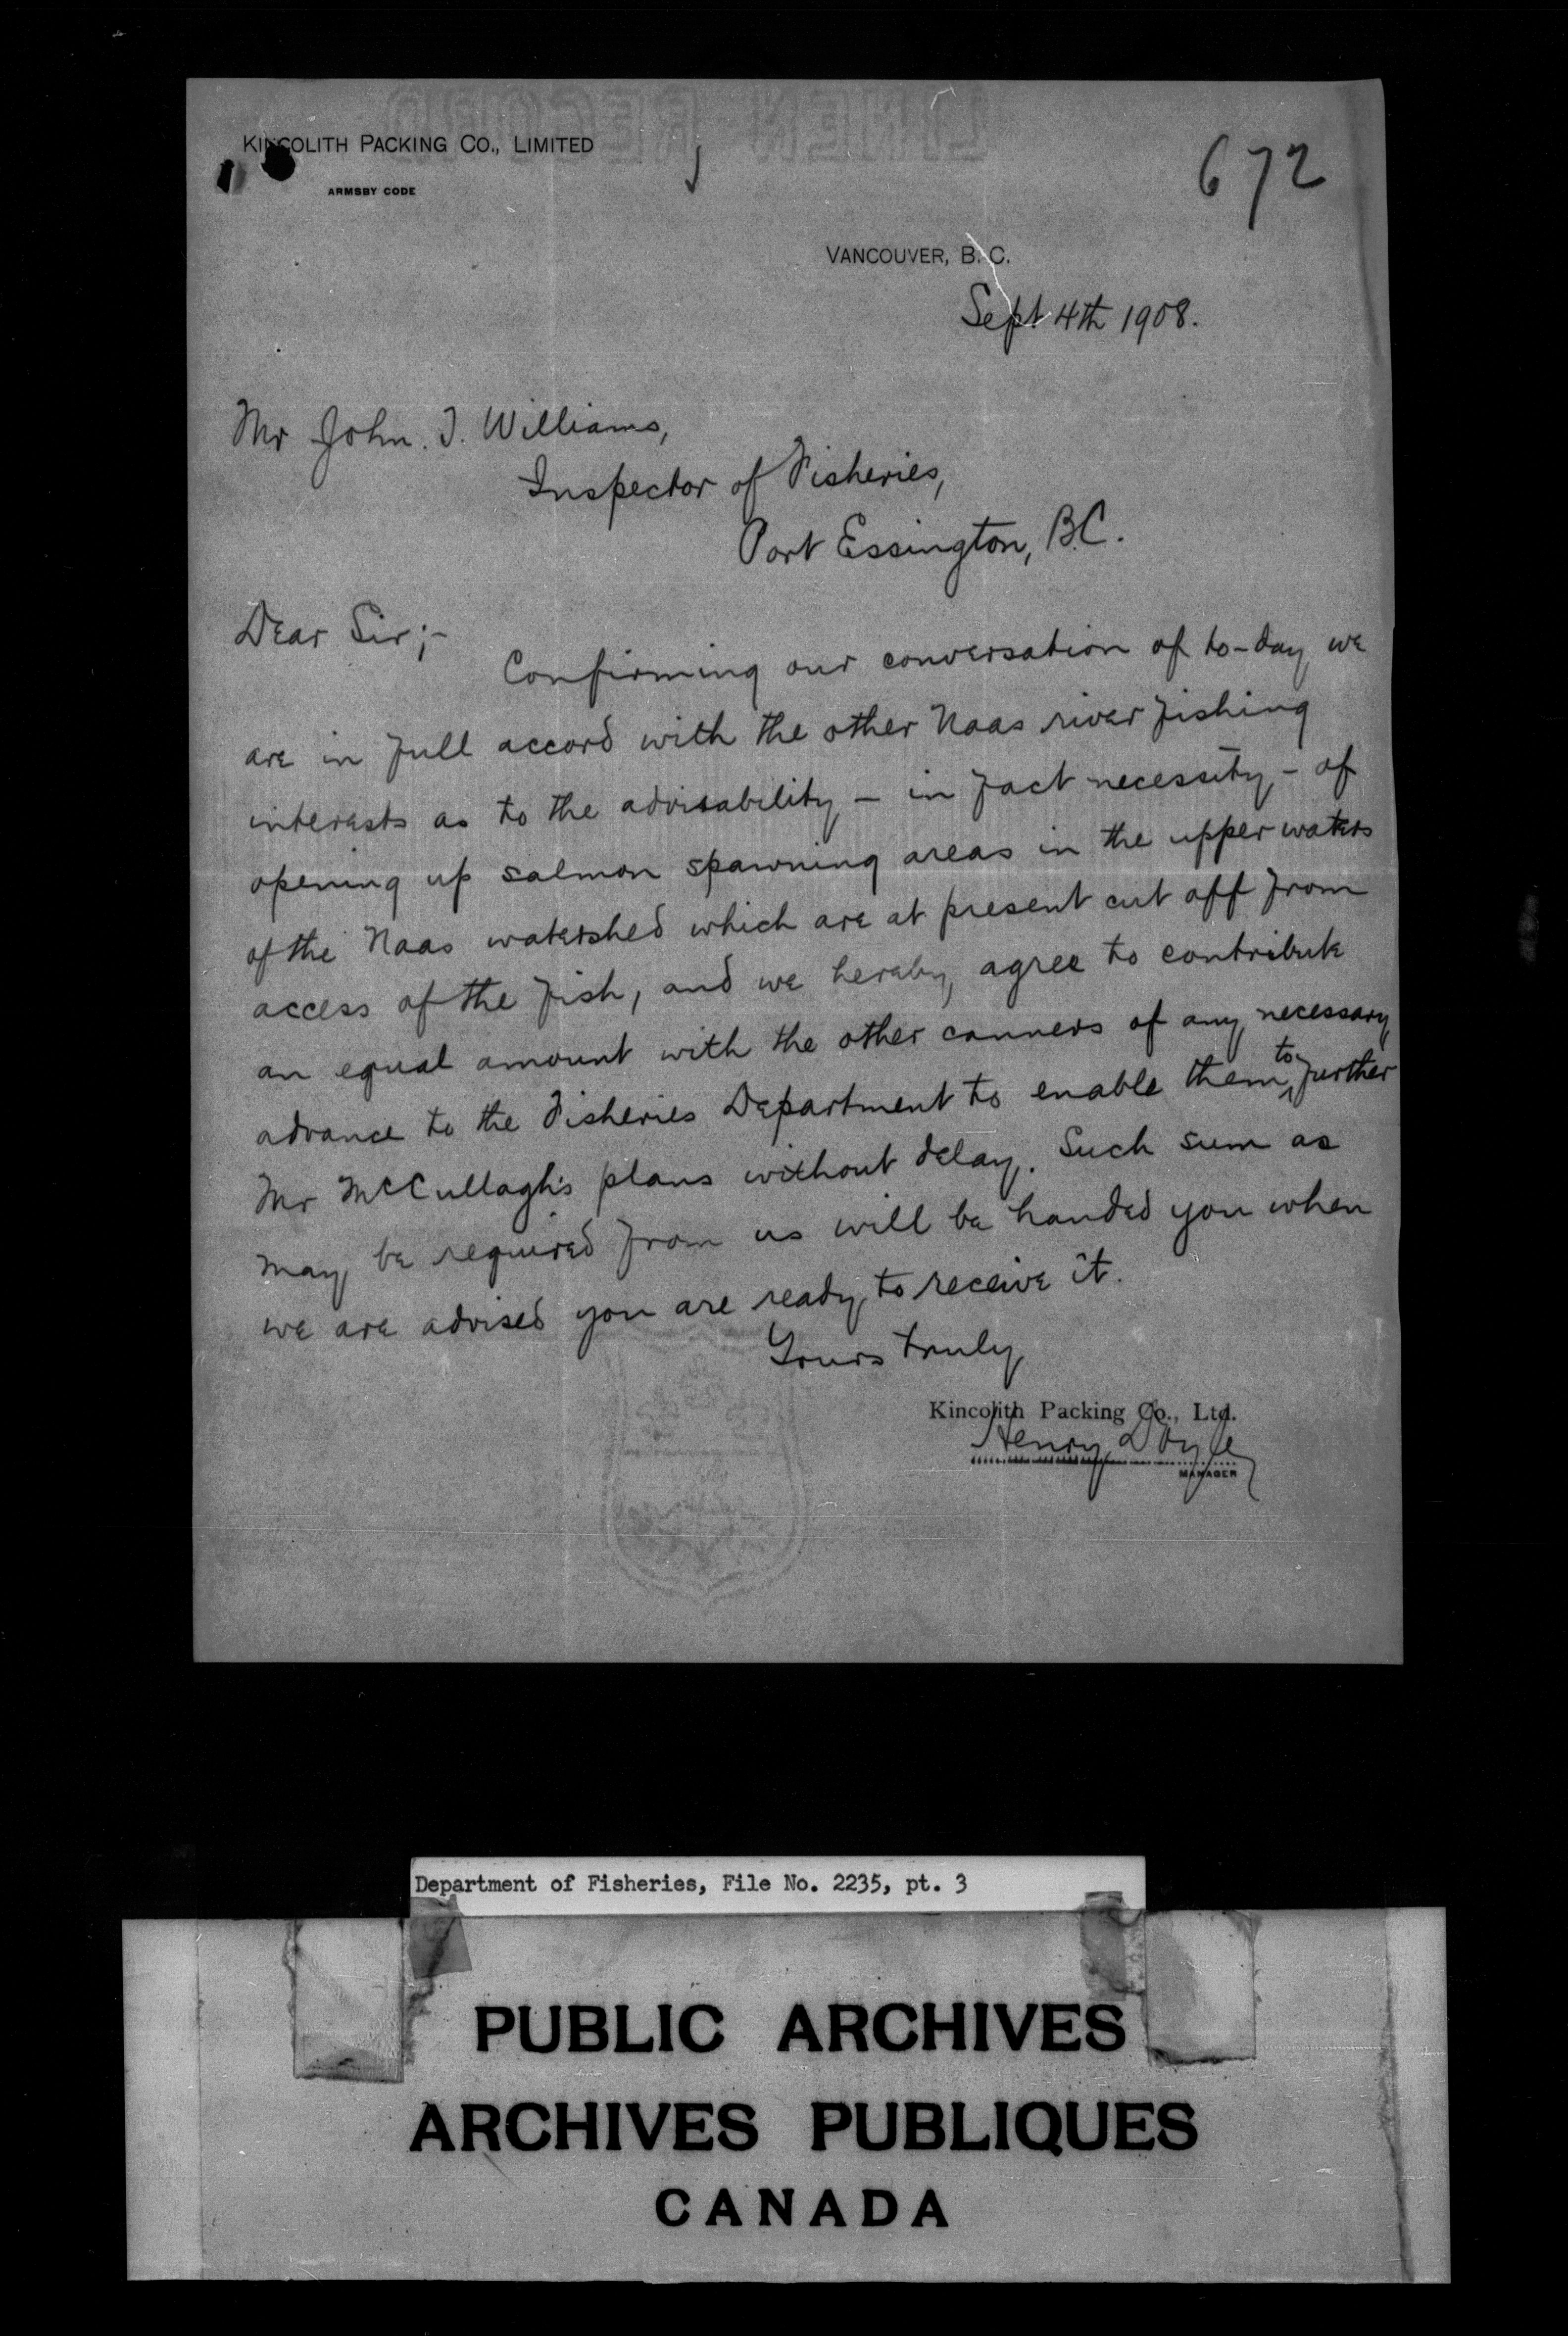 LINEN RECORD
KINCOLITH PACKING CO., LIMITED
ARMSBY CODE
672
VANCOUVER, B. C.
Sept 4th 1908.
Mr John. T. Williams,
Inspector of Fisheries,
Port Essington, B.C.
Dear Sir;-
Confirming our conversation of to-day we
are in full accord with the other Naas river fishing
interests as to the advisability - in fact necessity - of
opening up salmon spawning areas in the upper waters
of the Naas watershed which are at present cut off from
access of the fish, and we hereby agree to contribute
an equal amount with the other canners of any necessary
advance to the Fisheries Department to enable them to further
Mr McCullagh's plans without delay. Such sum as
may be required from us will be handed you when
we are advised you are ready to receive it.
Yours truly
Kincolith Packing Co., Ltd.
Henry Doyle
MANAGER
Department of Fisheries, File No. 2235, pt. 3
PUBLIC ARCHIVES
ARCHIVES PUBLIQUES
CANADA